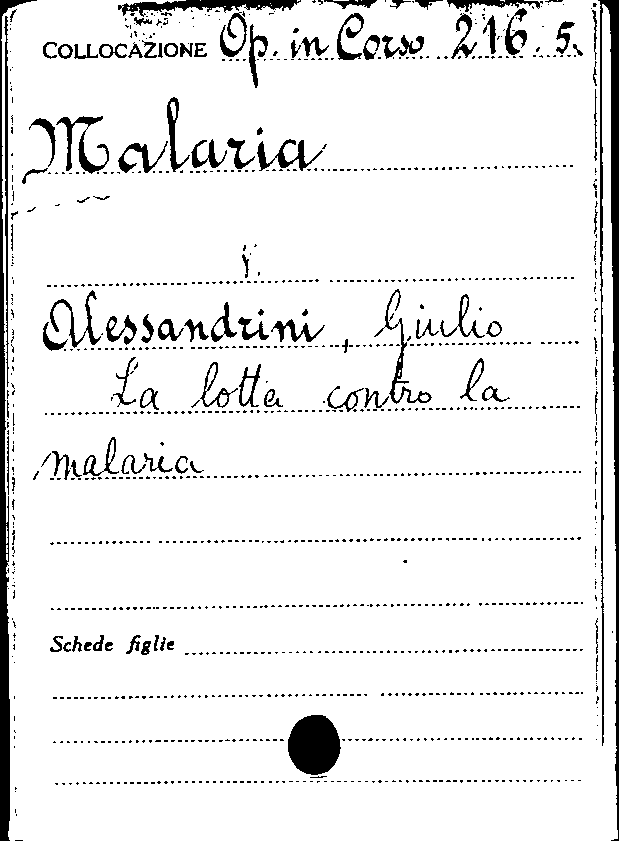 COLLOCAZIONE Op. in Corso 216. 5.
Malaria
v.
Alessandrini, Giulio
La lotta contro la
malaria
Schede figlie